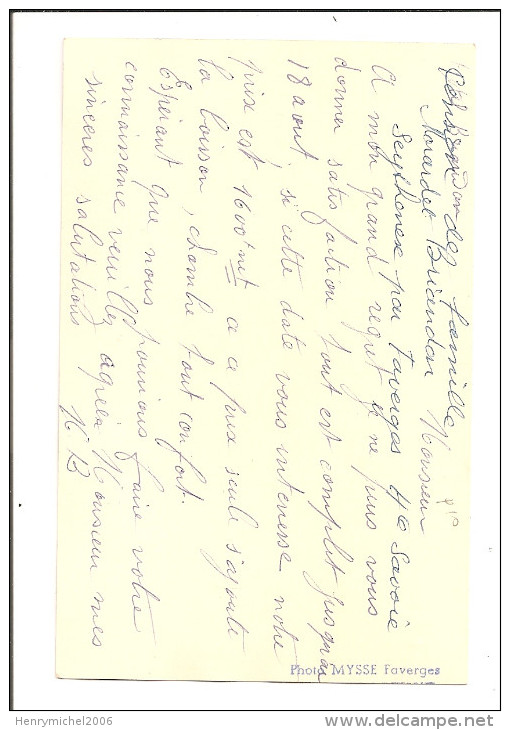 Pension de famille
Morardet Briandon
Seythenex par Faverges Hte Savoie
Monsieur
A mon grand regret je ne puis vous
donner satisfaction tout est complet jusquau
18 aout, si cette date vous interresse notre
prix est 1600f net a ce prix seule s'ajoute
la boisson, chambre tout confort.
Esperant que nous pourrions faire votre
connaissance veuillez agréer Monsieur mes
sincères salutations
Photo MYSSE Faverges
Henrymichel2006
delcampe.net